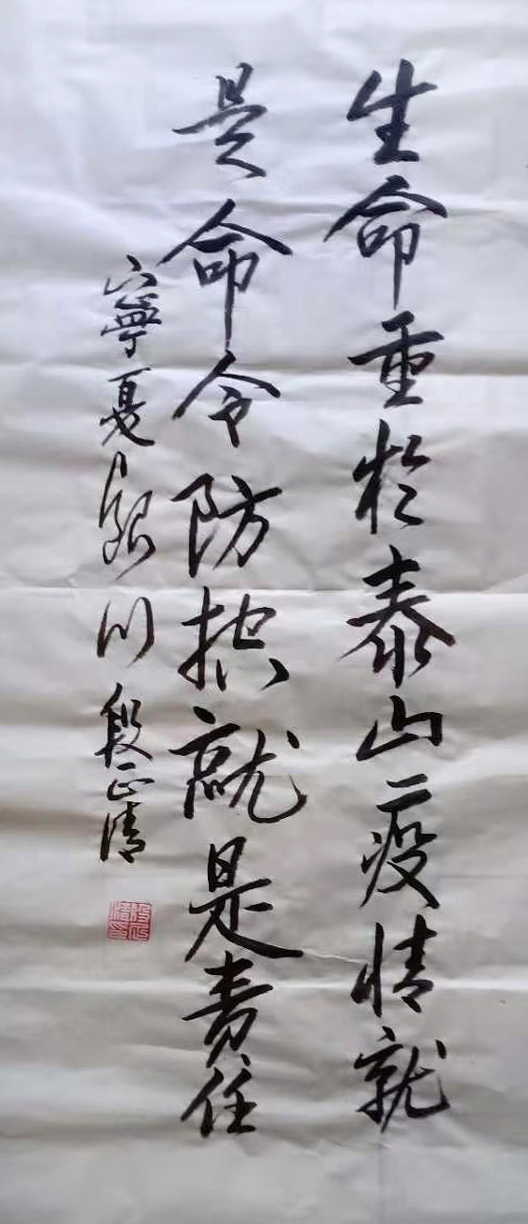 生命重於泰山疫情就
是命令防控就是責任
寧夏銀川段正清